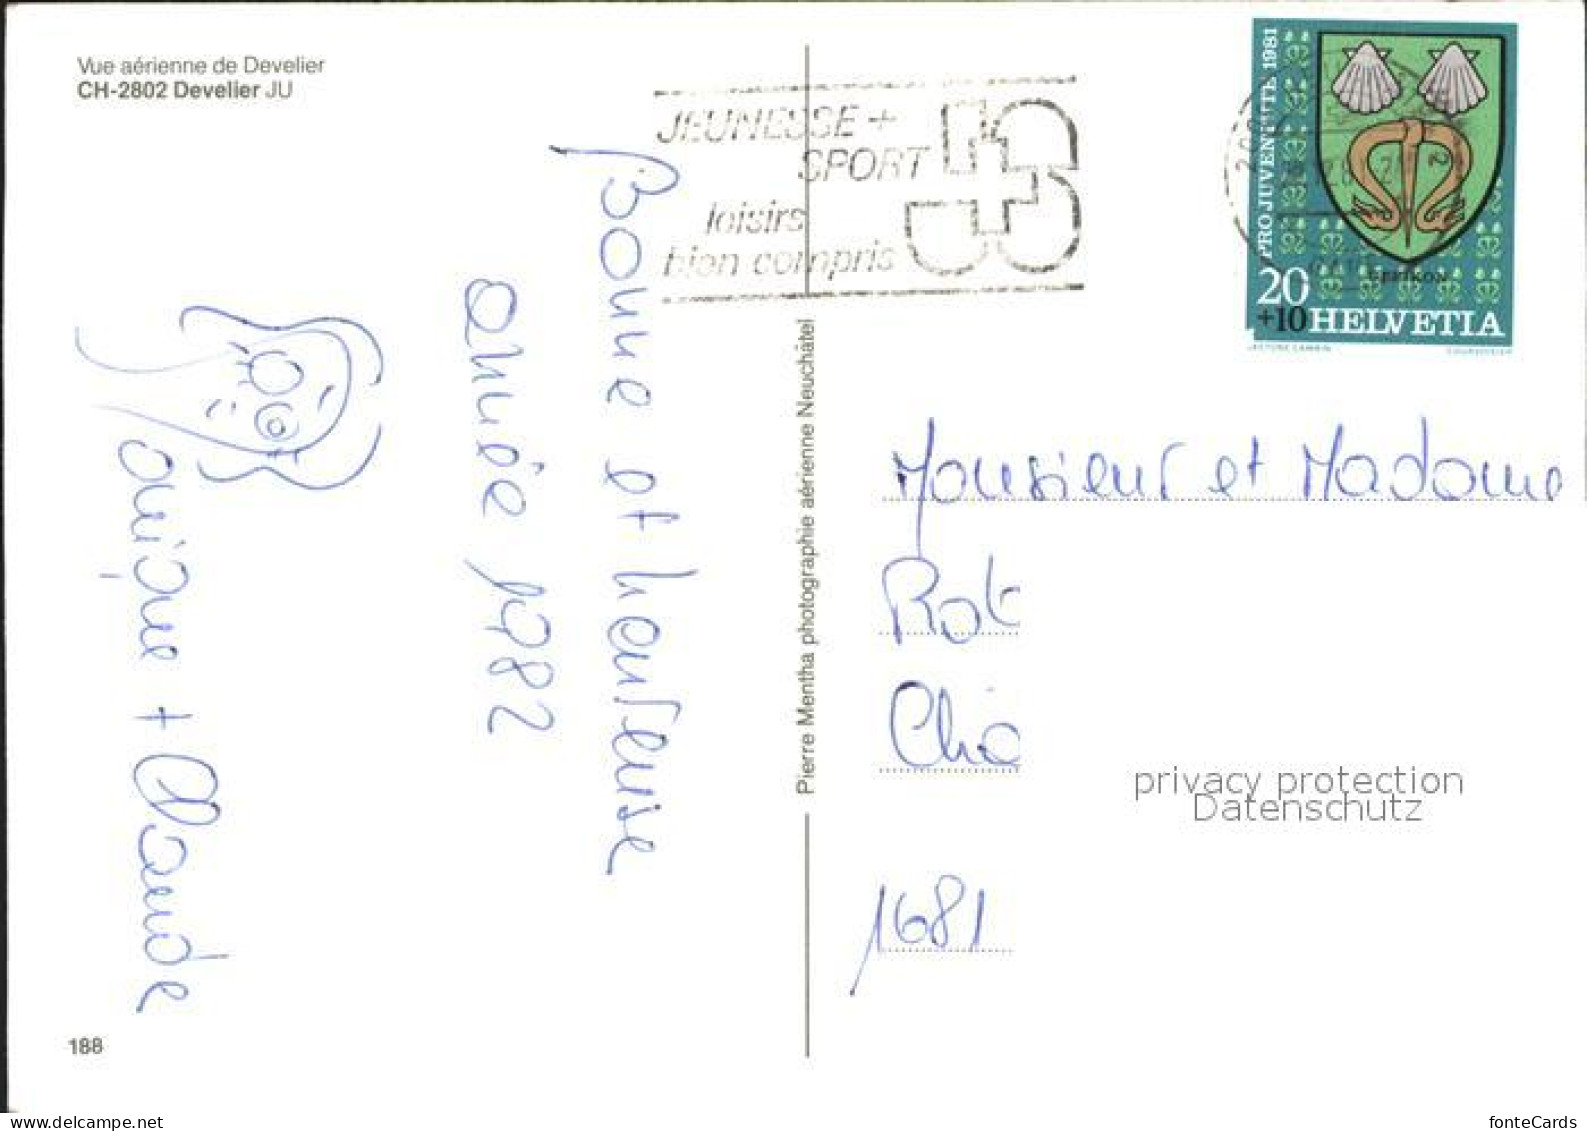 Vue aérienne de Develier
CH-2802 Develier JU
JEUNESSE +
SPORT
loisirs
bien compris
PRO JUVENTUTE 1981
20
+10 HELVETIA
Bonne et heureuse
année 1982
onique + Claude
Pierre Mentha photographie aérienne Neuchâtel
Monsieur et Madame
1681
privacy protection
Datenschutz
188
delcampe.net
fonteCards